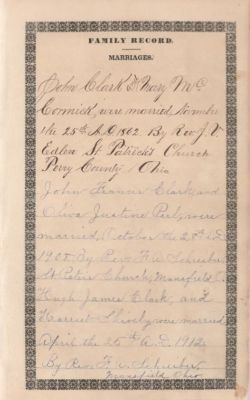 FAMILY RECORD.
MARRIAGES.
John Clark & Mary Mc
Cormick, were married
the 25th A.D 1862 By Rev J. V.
St Patrick's Church
Perry County, Ohio
John Francis Clark and
Oliva Justine were
married, October the 28th A.D.
1908 By Rev. F. A. Schreiber
St Peter Church, Mansfield O.
Hugh James Clark, and
Harriet Shively were married
April the 25th A.D. 1912
By Rev. F. A. Schreiber,
Mansfield, Ohio